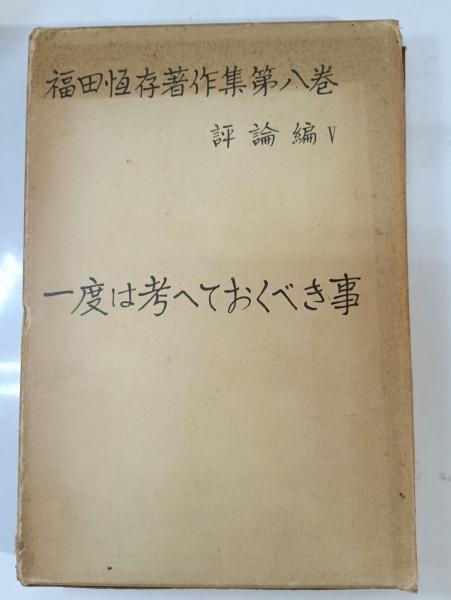 福田恆存著作集第八巻
評論編Ⅴ
一度は考へておくべき事